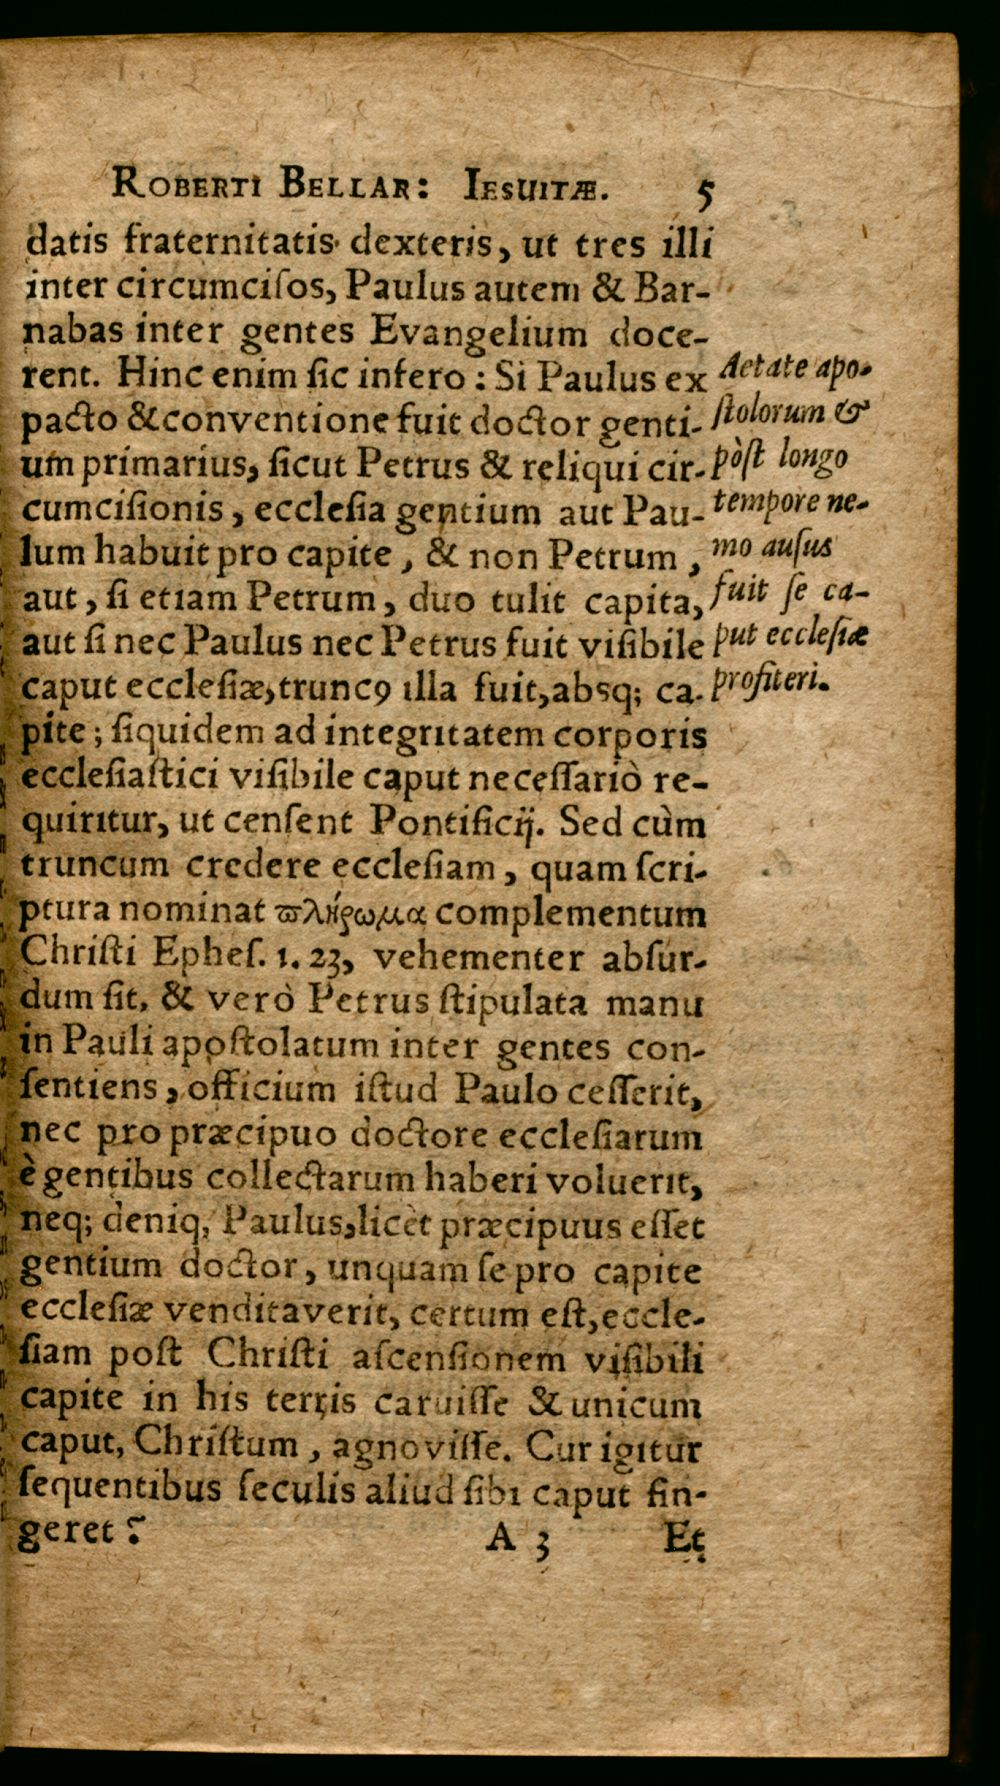 ROBERTI BELLAR: IESUITÆ. 5
datis fraternitatis dexteris, ut tres illi
inter circumciſos, Paulus autem & Bar-
nabas inter gentes Evangelium doce-
rent. Hinc enim ſic infero : Si Paulus ex
pacto & conventione fuit doctor genti-
um primarius, ſicut Petrus & reliqui cir-
cumciſionis, eccleſia gentium aut Pau-
lum habuit pro capite, & non Petrum,
aut, ſi etiam Petrum, duo tulit capita,
aut ſi nec Paulus nec Petrus fuit viſibile
caput eccleſiæ, truncꝰ illa fuit, absq; ca-
pite; ſiquidem ad integritatem corporis
eccleſiaſtici viſibile caput neceſſariò re-
quiritur, ut cenſent Pontificij. Sed cùm
truncum credere eccleſiam, quam ſcri-
ptura nominat ϖλήρωμα complementum
Chriſti Epheſ. 1. 23, vehementer abſur-
dum ſit, & verò Petrus ſtipulata manu
in Pauli apoſtolatum inter gentes con-
ſentiens, officium iſtud Paulo ceſſerit,
nec pro præcipuo doctore eccleſiarum
è gentibus collectarum haberi voluerit,
neq; deniq, Paulus, licèt præcipuus eſſet
gentium doctor, unquam ſe pro capite
eccleſiæ venditaverit, certum eſt, eccle-
ſiam poſt Chriſti aſcenſionem viſibili
capite in his terris caruiſſe & unicum
caput, Chriſtum, agnoviſſe. Cur igitur
ſequentibus ſeculis aliud ſibi caput fin-
geret ?
A 3 Et
Aetate apo-
ſtolorum &
pòſt longo
tempore ne-
mo auſus
fuit ſe ca-
put eccleſiæ
profiteri.